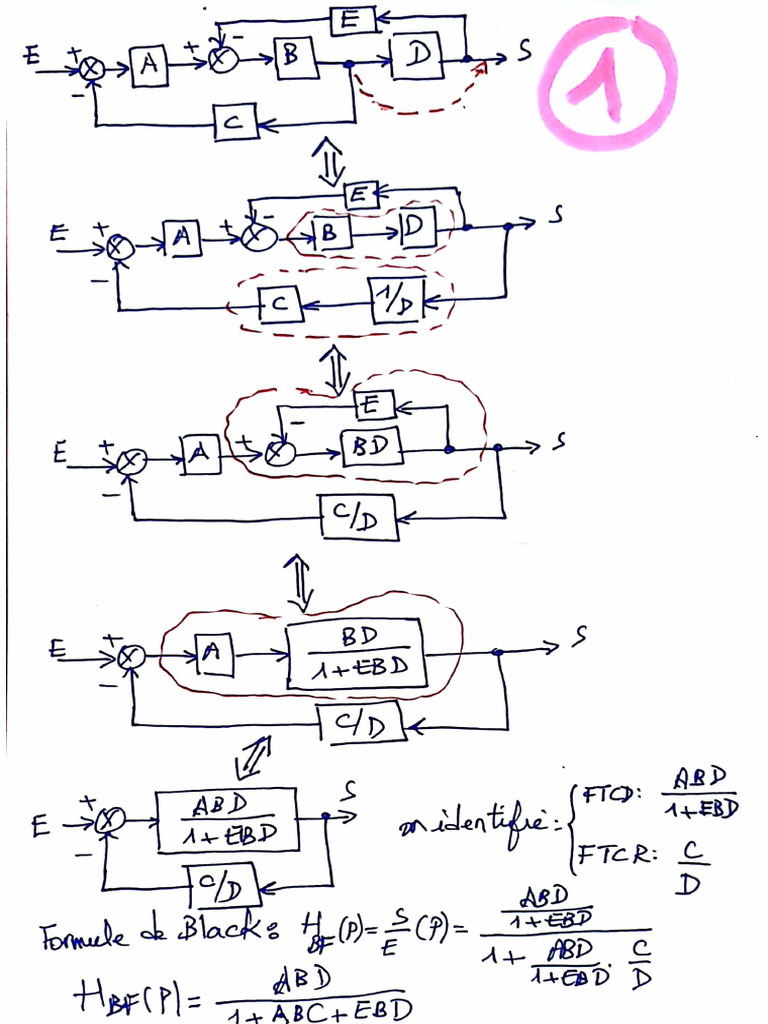 E
E + A + - B D S
- C
1
E
E + A + - B D S
- C 1/D
E
E + A + - BD S
- C/D
E + A BD/(1+EBD) S
- C/D
E + ABD/(1+EBD) S
- C/D
on identifie : { FTCD: ABD/(1+EBD)
FTCR: C/D
Formule de Black : H_BF(P) = S/E (P) = (ABD/(1+EBD)) / (1 + ABD/(1+EBD) . C/D)
H_BF(P) = ABD/(1+ABC+EBD)